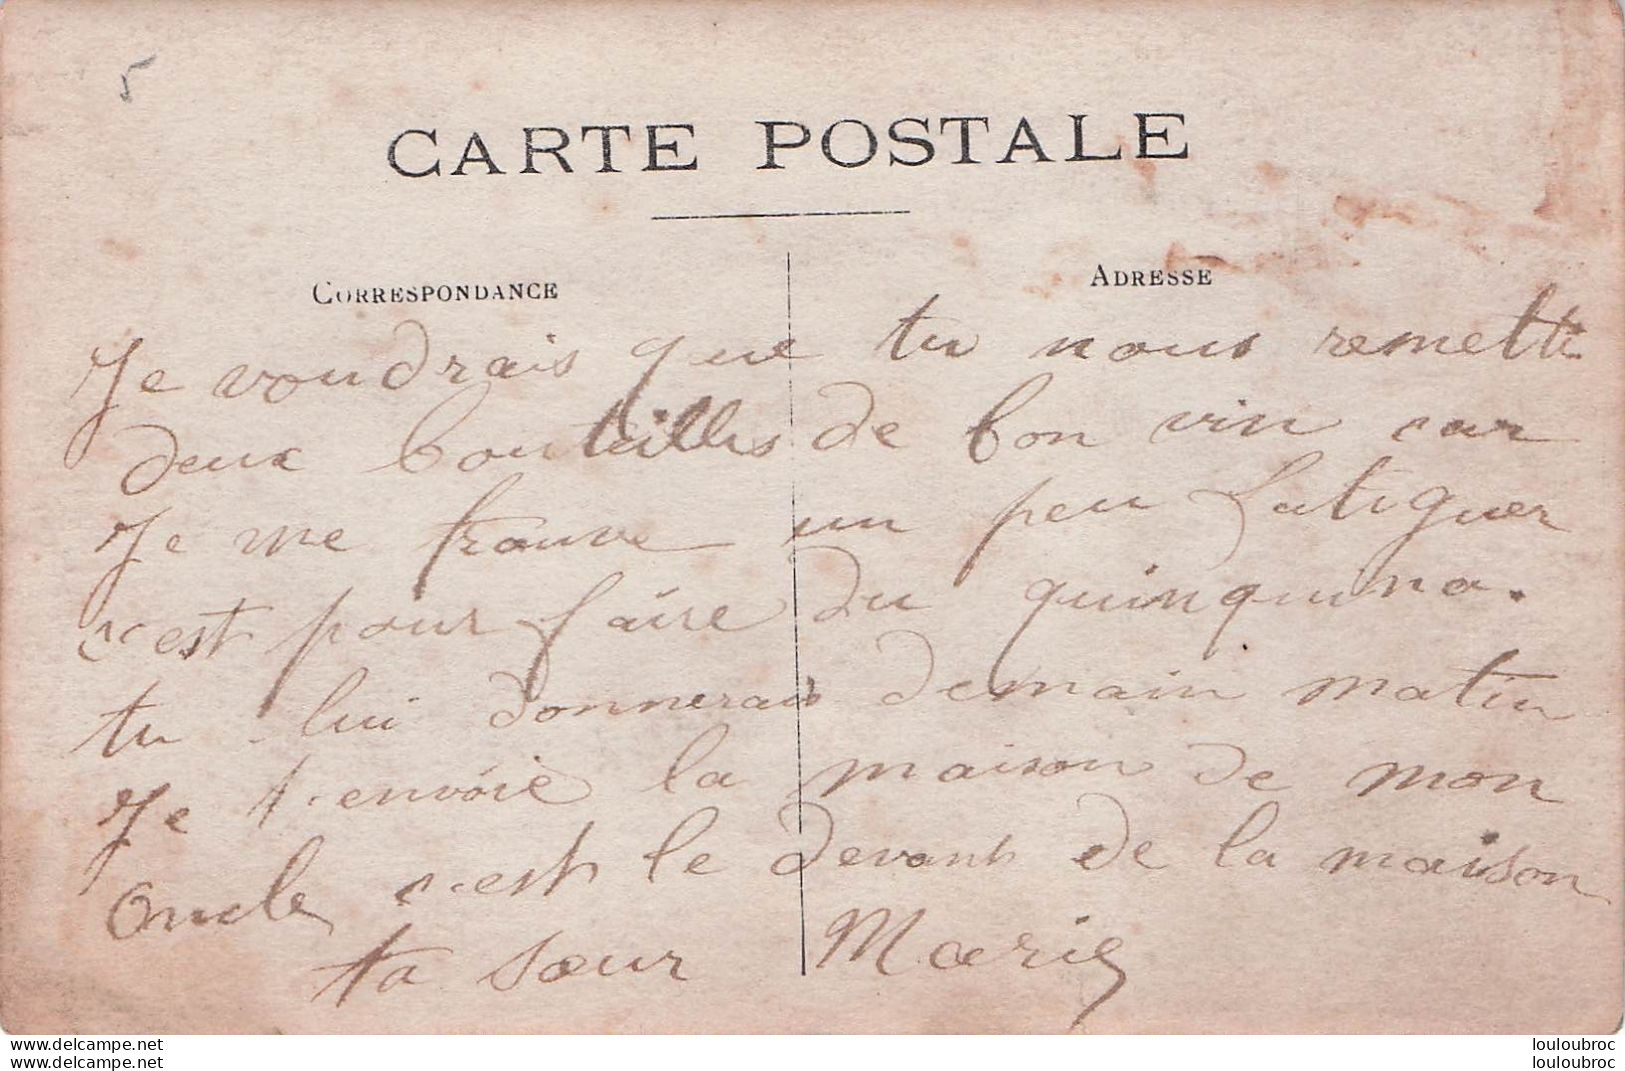 5
CARTE POSTALE
CORRESPONDANCE
ADRESSE
Je voudrais que tu nous remette
deux bouteilles de bon vin car
Je me trouve un peu fatiguer
c'est pour faire du quinquina.
tu lui donnerais demain matin
Je t'envoie la maison de mon
Oncle c'est le devant de la maison
ta sœur Marie
www.delcampe.net
www.delcampe.net
louloubroc
louloubroc